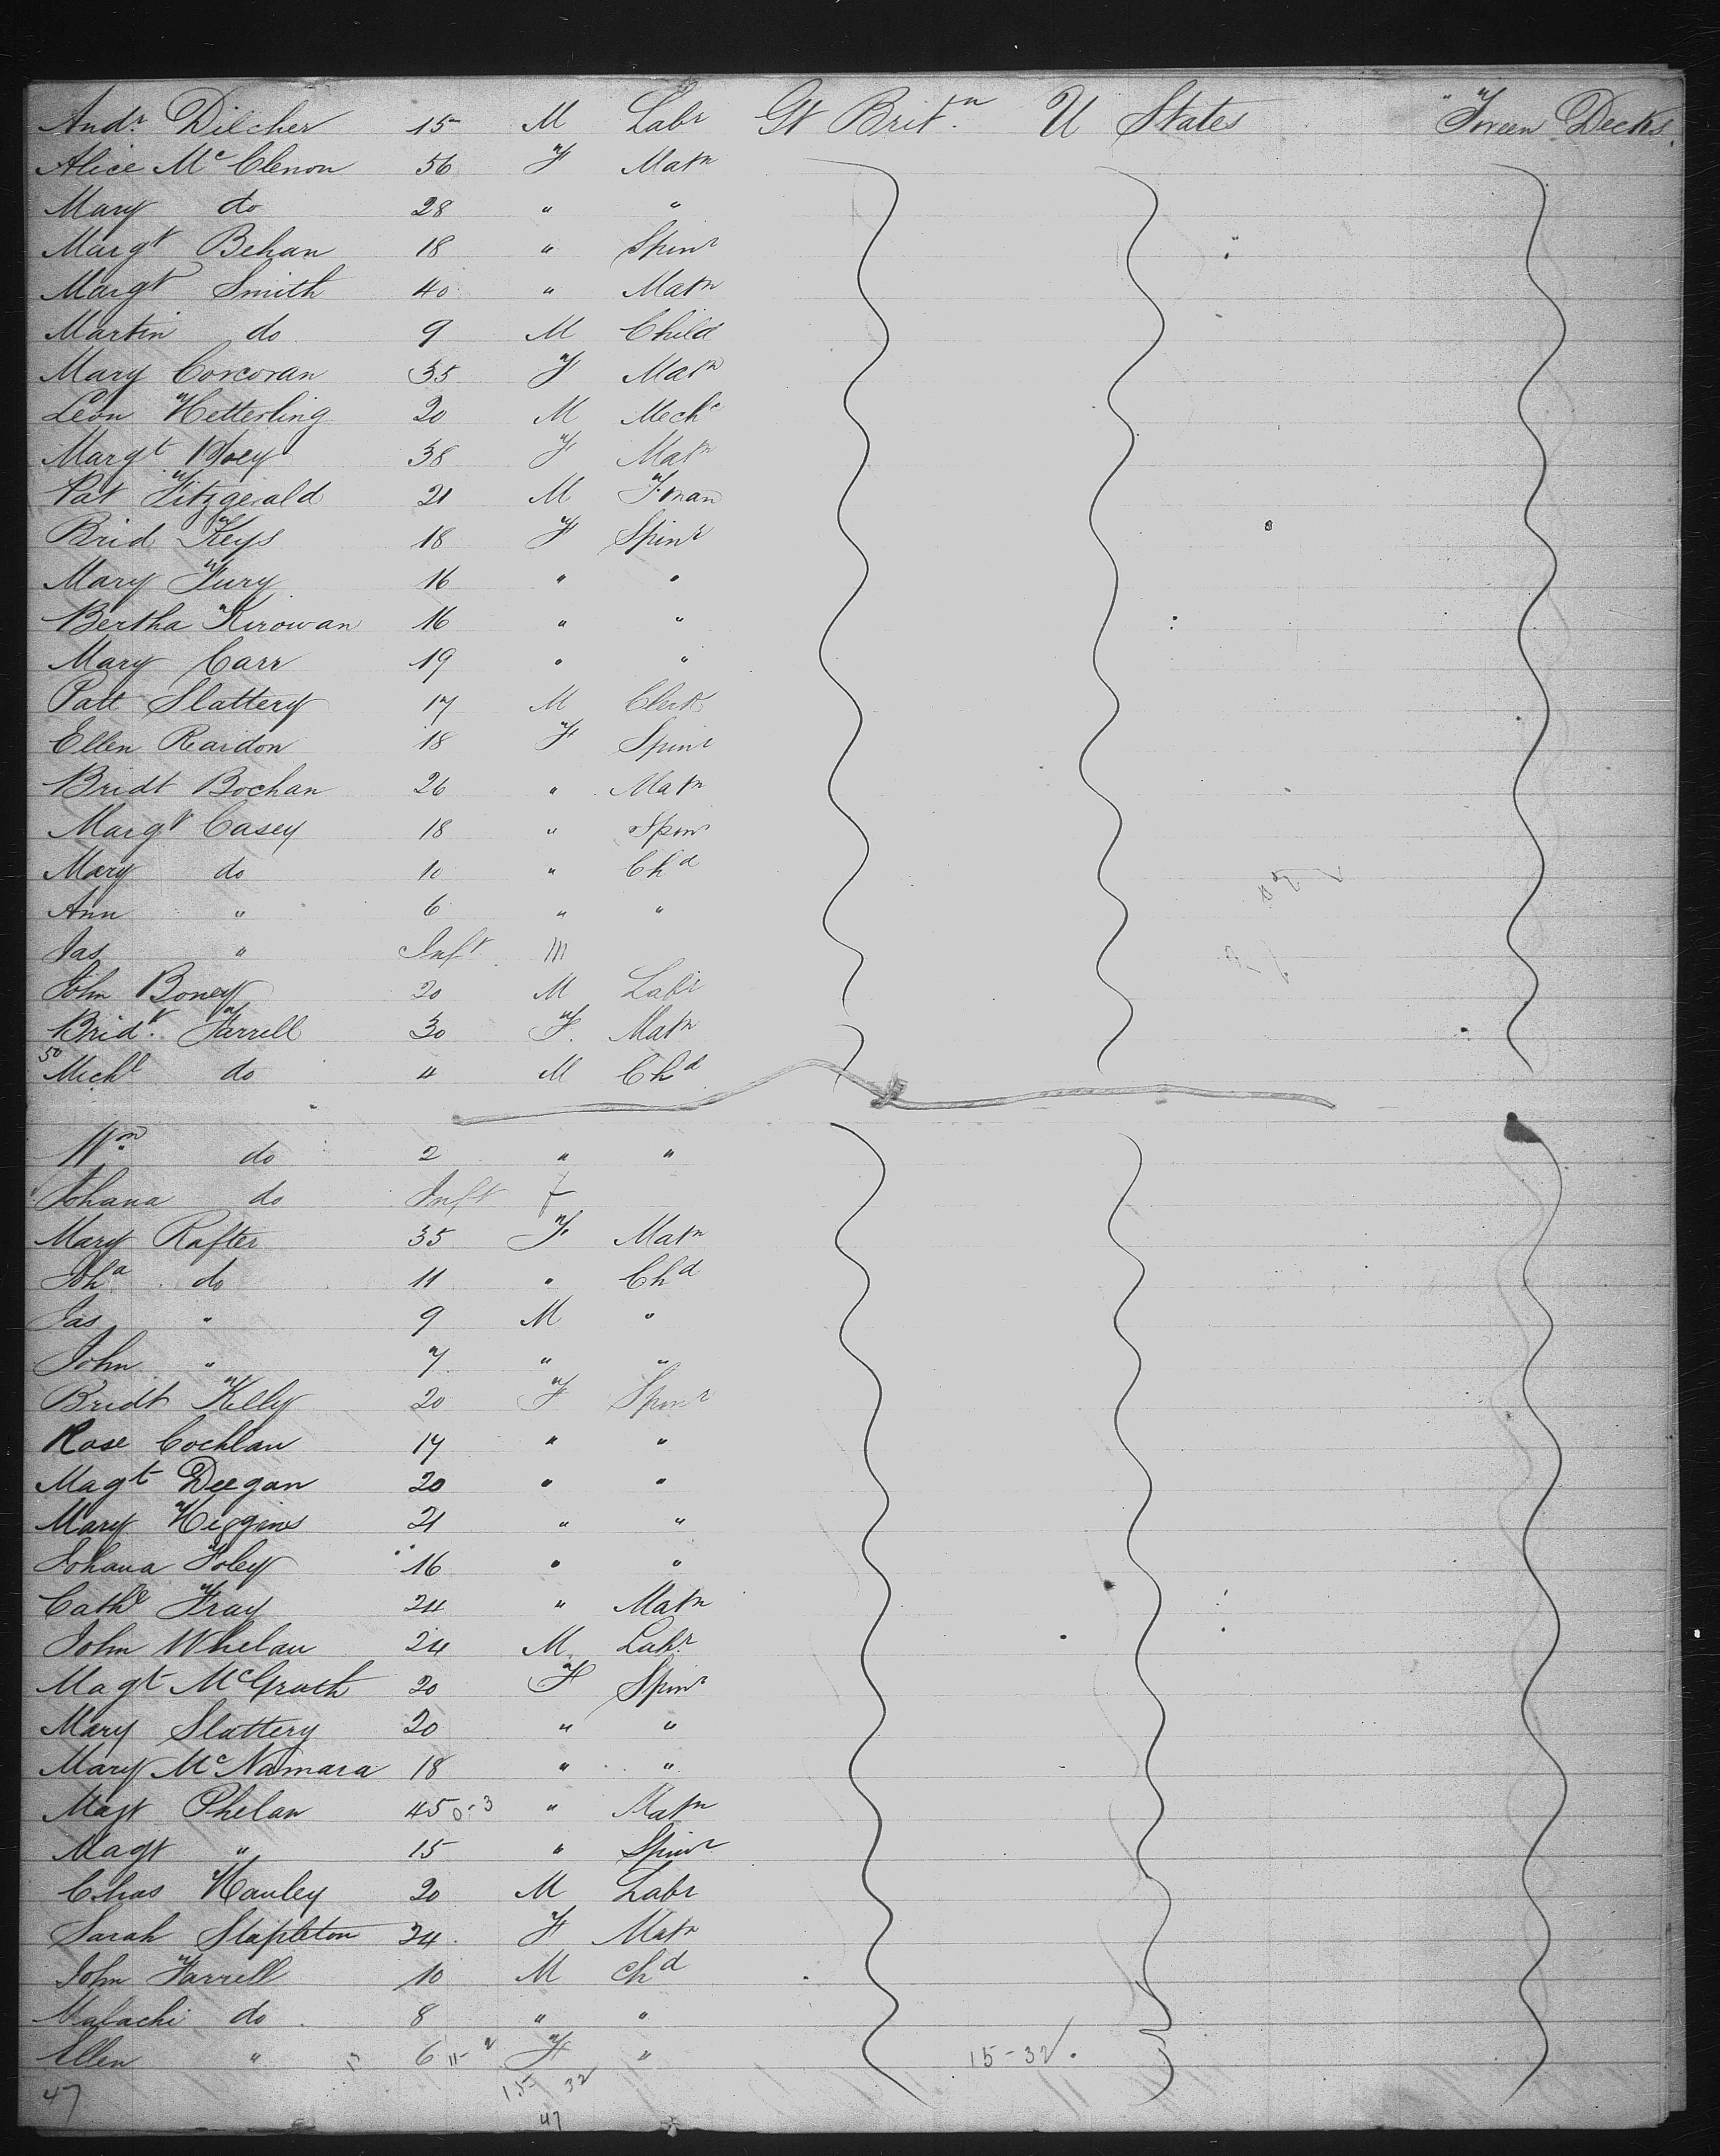 Andr Dilcher 15 M Labr Gt Britn U States 'Tween Decks
Alice McClenon 56 F Matn
Mary do 28 " "
Margt Behan 18 " Spinr
Margt Smith 40 " Matn
Martin do 9 M Child
Mary Corcoran 35 F Matn
Leon Hetterling 20 M Mechc
Margt Hoey 38 F Matn
Pat Fitzgerald 21 M F.man
Brid Keys 18 F Spinr
Mary Fury 16 " "
Bertha Kirowan 16 " "
Mary Carr 19 " "
Patt Slattery 17 M Clerk
Ellen Reardon 18 F Spinr
Bridt Bochan 26 " Matn
Margt Casey 18 " Spinr
Mary do 10 " Chd
Ann " 6 " "
Jas " Inft M
John Boney 20 M Labr
Bridt Farrell 30 F. Matn
50 Michl do 4 M Chd
Wm do 2 " "
Johana do Inft f
Mary Rafter 35 F Matn
Joha do 11 " Chd
Jas " 9 M "
John " 7 " "
Bridt Kelly 20 F Spinr
Rose Cochlan 17 " "
Magt Deegan 20 " "
Mary Higgins 21 " "
Johana Foley 16 " "
Cathe Fray 24 " Matn
John Whelan 24 M Labr
Magt McGrath 20 F Spinr
Mary Slattery 20 " "
Mary McNamara 18 " "
Magt Phelan 45 0-3 " Matn
Magt " 15 " Spinr
Chas Hanley 20 M Labr
Sarah Stapleton 24 F Matn
John Farrell 10 M chd
Malachi do 8 " "
Ellen " 6 F " 15-32
15 32
47 47